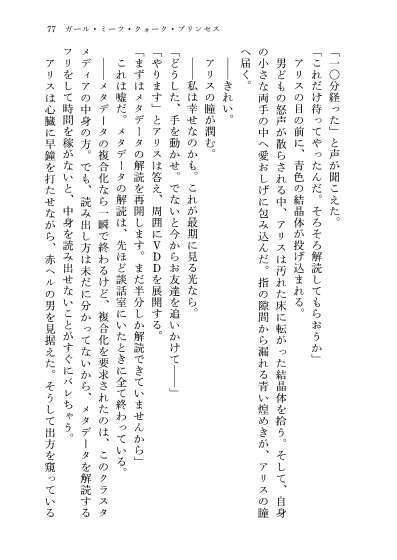 77 ガール・ミーツ・クォーク・プリンセス
「一〇分経った」と声が聞こえた。
「これだけ待ってやったんだ。そろそろ解読してもらおうか」
アリスの目の前に、青色の結晶体が投げ込まれる。
男どもの怒声が散らされる中、アリスは汚れた床に転がった結晶体を拾う。そして、自身
の小さな両手の中へ愛おしげに包み込んだ。指の隙間から漏れる青い煌めきが、アリスの瞳
へ届く。
――きれい。
アリスの瞳が潤む。
――私は幸せなのかも。これが最期に見る光なら。
「どうした、手を動かせ。でないと今からお友達を追いかけて――」
「やります」とアリスは答え、周囲にVDDを展開する。
「まずはメタデータの解読を再開します。まだ半分しか解読できていませんから」
これは嘘だ。メタデータの解読は、先ほど談話室にいたときに全て終わっている。
――メタデータの複合化なら一瞬で終わるけど、複合化を要求されたのは、このクラスタ
メディアの中身の方。でも、読み出し方は未だに分かってないから、メタデータを解読する
フリをして時間を稼がないと、中身を読み出せないことがすぐにバレちゃう。
アリスは心臓に早鐘を打たせながら、赤ヘルの男を見据えた。そうして出方を窺っている